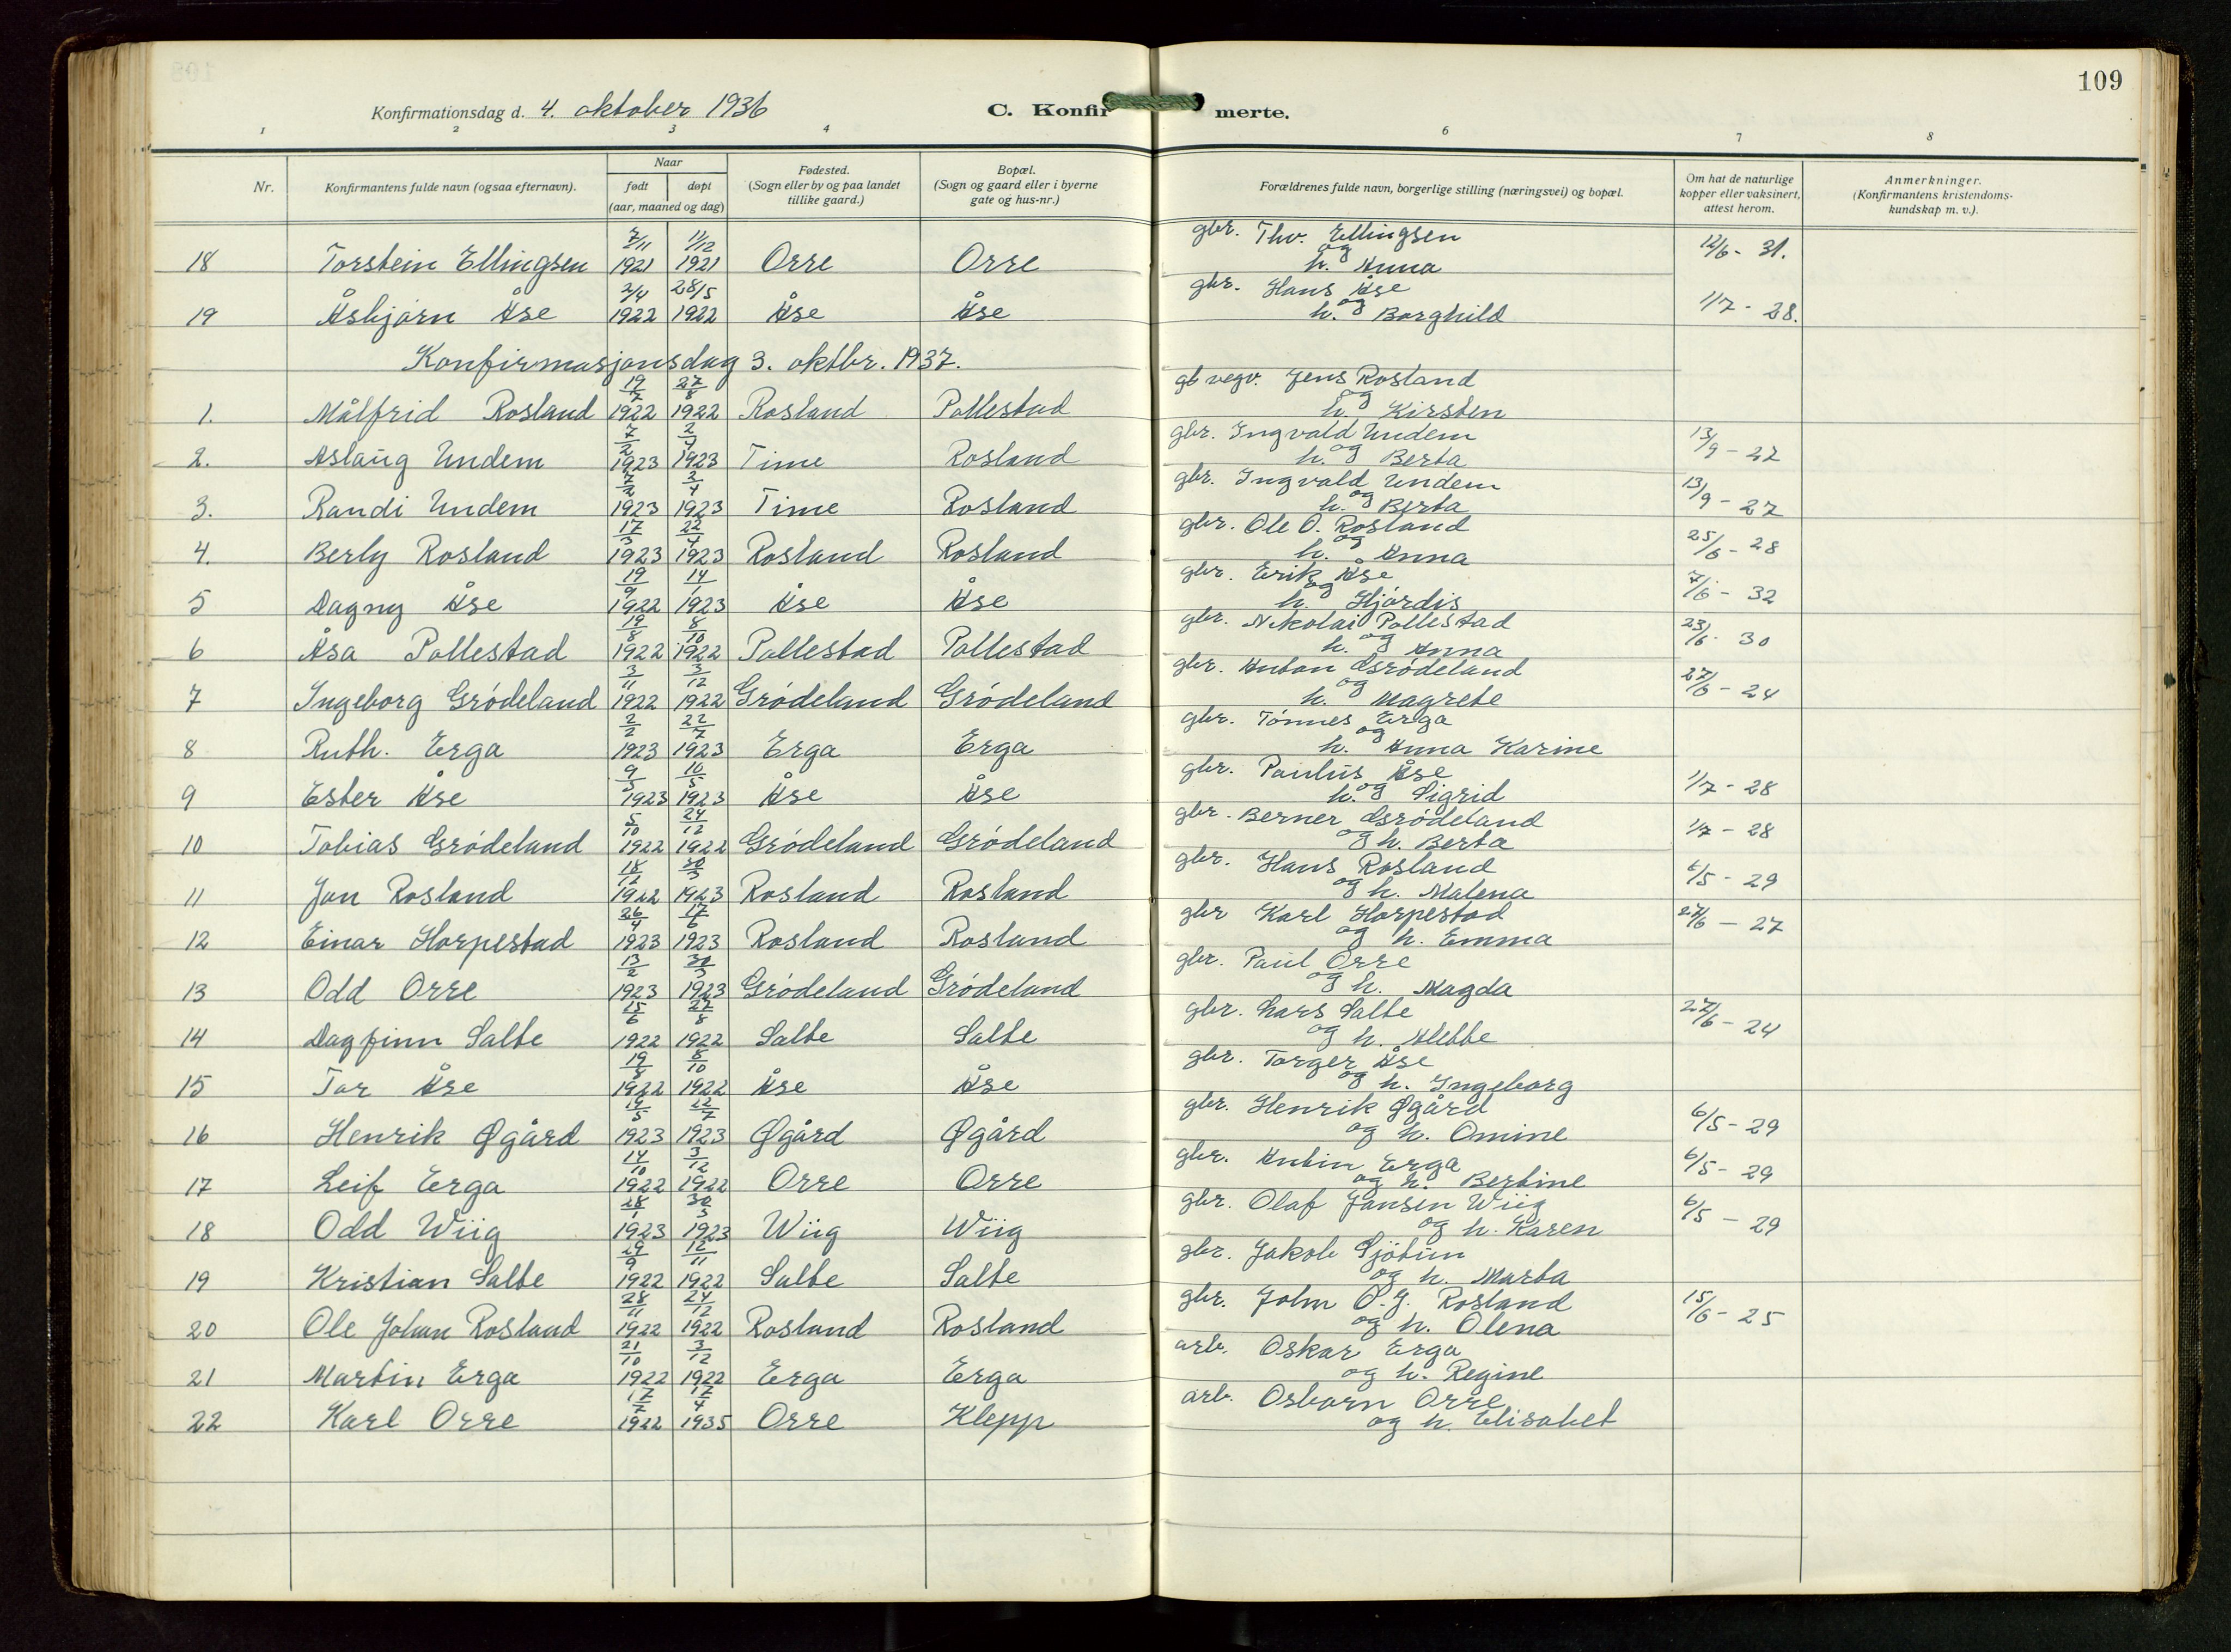 109
Konfirmationsdag d. 4. oktober 1936
C. Konfir merte.
1 2 3 4 6 7 8
Nr.
Konfirmantens fulde navn (ogsaa efternavn).
Naar
født døpt
(aar, maaned og dag)
Fødested.
(Sogn eller by og paa landet
tillike gaard.)
Bopæl.
(Sogn og gaard eller i byerne
gate og hus-nr.)
Forældrenes fulde navn, borgerlige stilling (næringsvei) og bopæl.
Om hat de naturlige
kopper eller vaksinert,
attest herom.
Anmerkninger.
(Konfirmantens kristendoms-
kundskap m. v.).
7/11 11/12 gbr. Thv. Ellingsen
18 Torstein Ellingsen 1921 1921 Orre Orre og h. Anna 12/6 - 31.
2/4 28/5 gbr. Hans Åse
19 Åsbjørn Åse 1922 1922 Åse Åse og h. Borghild 1/7 - 28.
Konfirmasjonsdag 3. oktbr. 1937.
19/7 27/8 gb vegv. Jens Rosland
1. Målfrid Rosland 1922 1922 Rosland Pollestad og h. Kirsten
7/2 2/4 gbr. Ingvald Undem
2. Aslaug Undem 1923 1923 Time Rosland og h. Berta 13/9 - 27
7/2 2/4 gbr. Ingvald Undem
3. Randi Undem 1923 1923 Time Rosland og h. Berta 13/9 - 27
17/3 22/4 gbr. Ole O. Rosland
4. Berly Rosland 1923 1923 Rosland Rosland og h. Anna 25/6 - 28
19/9 14/1 gbr. Erik Åse
5 Dagny Åse 1922 1923 Åse Åse og h. Hjørdis 7/6 - 32
19/8 8/10 gbr. Nikolai Pollestad
6 Åsa Pollestad 1922 1922 Pollestad Pollestad og h. Anna 23/6 - 30
3/11 3/12 gbr. Anton Grødeland
7 Ingeborg Grødeland 1922 1922 Grødeland Grødeland og h. Magrete 27/6 - 24
2/2 22/7 gbr. Tønnes Erga
8 Ruth. Erga 1923 1923 Erga Erga og h. Anna Karine
9/3 10/5 gbr. Paulus Åse
9 Ester Åse 1923 1923 Åse Åse og h. Sigrid 1/7 - 28
5/10 24/12 gbr. Berner Grødeland
10 Tobias Grødeland 1922 1922 Grødeland Grødeland og h. Berta 1/7 - 28
18/12 30/3 gbr. Hans Rosland
11 Jan Rosland 1922 1923 Rosland Rosland og h. Malena 6/5 - 29
26/4 17/6 gbr Karl Horpestad
12 Einar Horpestad 1923 1923 Rosland Rosland og h. Emma 27/6 - 27
13/2 30/3 gbr. Paul Orre
13 Odd Orre 1923 1923 Grødeland Grødeland og h. Magda
15/6 27/8 gbr. Lars Salte
14 Dagfinn Salte 1922 1922 Salte Salte og h. Alette 27/6 - 24
19/8 8/10 gbr. Torger Åse
15 Tor Åse 1922 1922 Åse Åse og h. Ingeborg
19/5 22/7 gbr. Henrik Øgård
16 Henrik Øgård 1923 1923 Øgård Øgård og h. Omine 6/5 - 29
14/10 3/12 gbr. Antin Erga
17 Leif Erga 1922 1922 Orre Orre og h. Bertine 6/5 - 29
28/1 30/3 gbr. Olaf Jansen Wiig
18 Odd Wiig 1923 1923 Wiig Wiig og h. Karen 6/5 - 29
29/9 12/11 gbr. Jakob Sjøtun
19 Kristian Salte 1922 1922 Salte Salte og h. Marta
28/11 24/12 gbr. John O. J. Rosland
20 Ole Johan Rosland 1922 1922 Rosland Rosland og h. Olena 15/6 - 25
21/10 3/12 arb. Oskar Erga
21 Martin Erga 1922 1922 Erga Erga og h. Regine
17/7 17/4 arb. Osborn Orre
22 Karl Orre 1922 1935 Orre Klepp og h. Elisabet